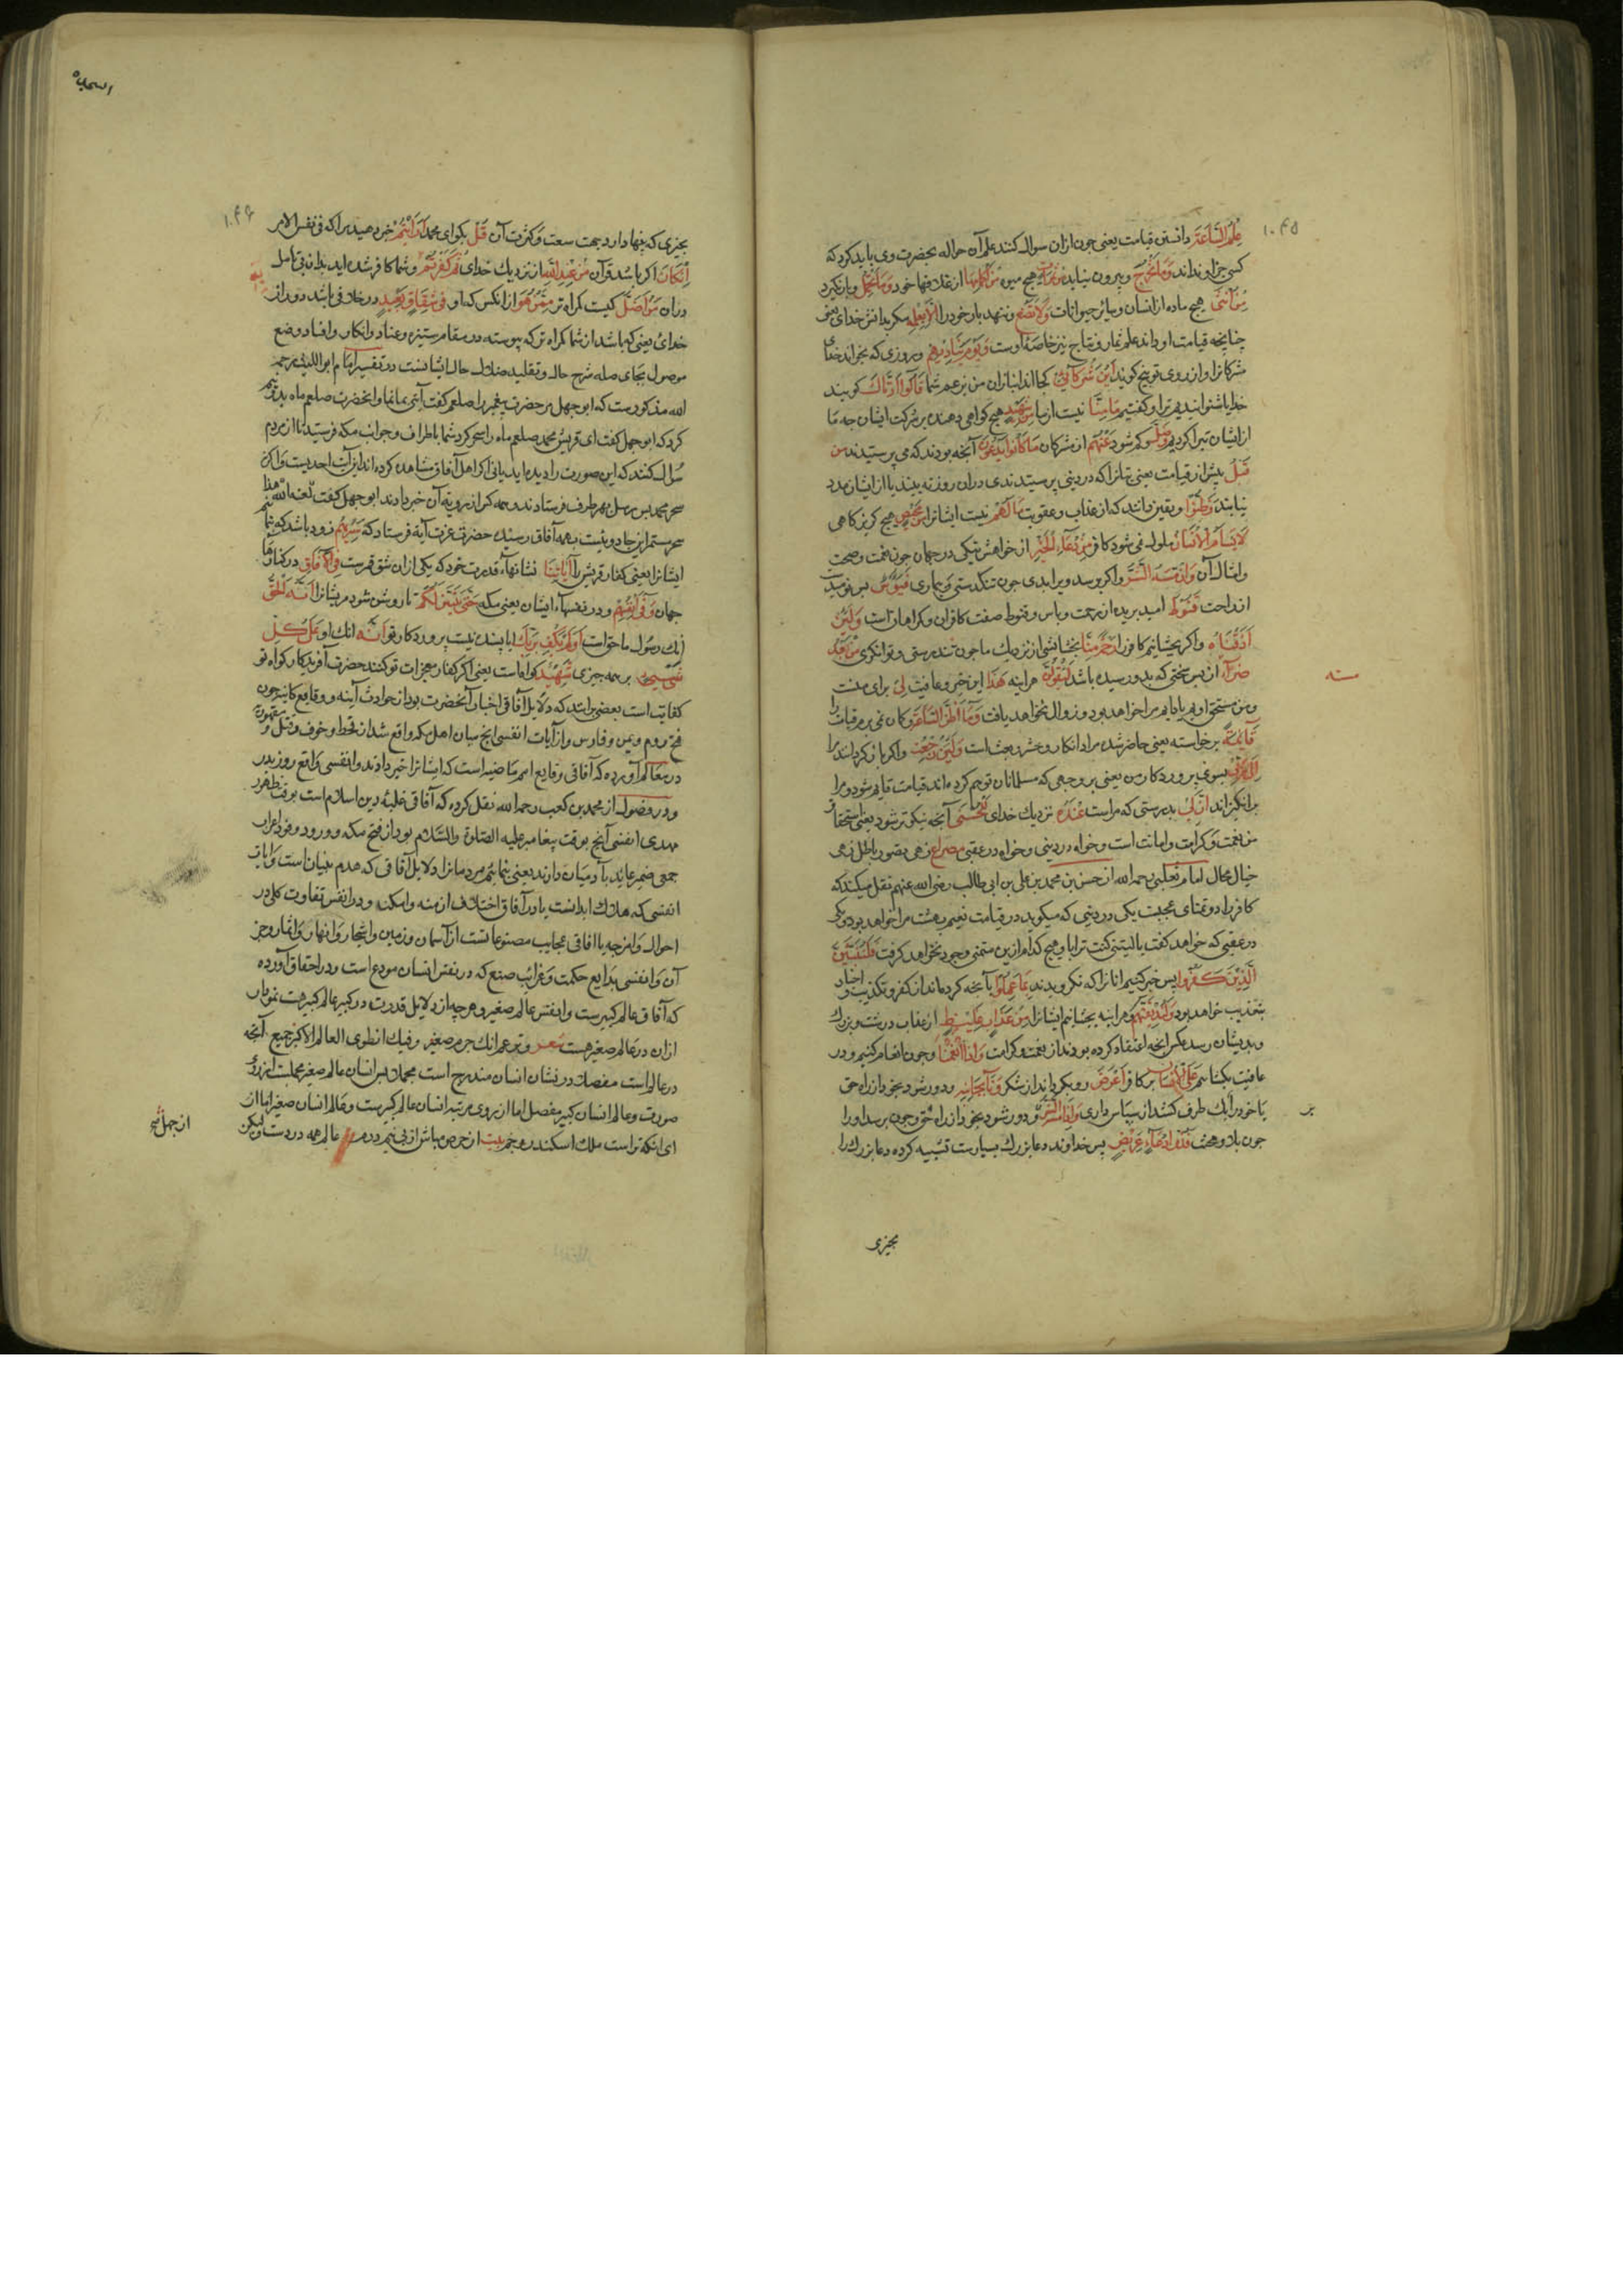 ۱۰۴۵
عِلْمُ السَّاعَةِ دانستن قیامت یعنی چون ازان سوال کنند علم آن حواله بحضرت وی باید کرد که
کسی جز او نداند وَمَا تَخْرُجُ و بیرون نیاید مِنْ ثَمَرَاتٍ هیچ میوه مِنْ اَكْمَامِهَا از غلافهای خود وَمَا تَحْمِلُ و بار نگیرد
مِنْ اُنْثٰی هیچ ماده از انسان و سائر حیوانات وَلَا تَضَعُ و ننهد بار خود را اِلَّا بِعِلْمِهِ مگر بدانش خدای یعنی
چنانچه قیامت او داند علم ثمار و نتاج نیز خاصه اوست وَیَوْمَ یُنَادِیهِمْ و روزی که بخواند خدای
مشرکانرا و از روی توبیخ گوید اَیْنَ شُرَكَآئِی کجااند انبازان من بزعم شما قَالُوا اٰذَنَّاكَ گویند
خدایا شنوانیدیم ترا و گفتیم مَا مِنَّا نیست از ما مِنْ شَهِیدٍ هیچ گواهی دهنده بر شرکت ایشان چه ما
از ایشان تبرا کردیم وَضَلَّ و گم شود عَنْهُمْ از مشرکان مَا كَانُوا یَدْعُونَ آنچه بودند که می پرستیدند مِنْ
قَبْلُ پیش از قیامت یعنی بتانرا که در دنیی پرستیدندی دران روز نه بینند یا از ایشان مدد
نیابند وَظَنُّوا و یقین دانند که از عذاب و عقوبت مَا لَهُمْ نیست ایشانرا مِنْ مَحِیصٍ هیچ گریزگاهی
لَا یَسْأَمُ الْاِنْسَانُ ملول نمی شود کافر مِنْ دُعَاءِ الْخَیْرِ از خواهش نیکی در جهان چون نعمت و صحت
و امثال آن وَاِنْ مَسَّهُ الشَّرُّ و اگر برسد ویرا بدی چون تنگدستی و بیماری فَیَؤُسٌ پس نومید
از راحت قَنُوطٌ امید بریده از رحمت و یاس و قنوط صفت کافران و گمراهان است وَلَئِنْ
اَذَقْنَاهُ و اگر بچشانیم کافر را رَحْمَةً مِنَّا بخشایشی از نزدیك ما چون تندرستی و توانگری مِنْ بَعْدِ
ضَرَّآءَ از پس سختی که بدو رسیده باشد لَیَقُولَنَّ هر اینه هٰذَا این خیر و عافیت لِی برای منست
و من مستحق اویم یا دایم مرا خواهد بود و زوال نخواهد یافت وَمَا اَظُنُّ السَّاعَةَ و گمان نمی برم قیامت را
قَآئِمَةً برخواسته یعنی حاضر شده مراد انکار حشر و بعث است وَلَئِنْ رُجِعْتُ و اگر بازگردانند مرا
اِلٰی رَبِّی بسوی پروردگار من یعنی بر وجهی که مسلمانان توهم کرده اند قیامت قایم شود و مرا
برانگیزاند اِنَّ لِی بدرستی که مراست عِنْدَهُ نزدیك خدای لَلْحُسْنٰی آنچه نیکوتر شود یعنی استحقاق
من نعمت و کرامت و امانت است و خواه در دنیی و خواه در عقبی مصراع زهی تصور باطل زهی
خیال محال امام ثعلبی رحمه الله از حسن بن محمد بن علی بن ابی طالب رضی الله عنهم نقل میکند که
کافر را دو تمنای عجبست یکی در دنیی که میگوید در قیامت نعیم بهشت مرا خواهد بود و یکی
در عقبی که خواهد گفت یا لیتنی کنت ترابا و هیچ کدام ازین متمنی وجود نخواهد گرفت فَلَنُنَبِّئَنَّ
الَّذِینَ كَفَرُوا پس خبر کنیم انانرا که نگرویدند بِمَا عَمِلُوا بآنچه کرده اند از کفر و تکذیب و اخبار
بتعذیب خواهد بود وَلَنُذِیقَنَّهُمْ و هر اینه بچشانیم ایشانرا مِنْ عَذَابٍ غَلِیظٍ از عذاب درشت و بزرگ
و بدیشان رسد عکس انچه اعتقاد کرده بودند از نعمت و کرامت وَاِذَا اَنْعَمْنَا و چون انعام کنیم و در
عافیت بگشایم عَلَی الْاِنْسَانِ بر کافر اَعْرَضَ روبگرداند از شکر وَنَاٰ بِجَانِبِهِ و دور شود بخود از راه حق
یا خود را بیك طرف کشد از سپاس داری وَاِذَا مَسَّهُ الشَّرُّ و چون برسد او را
چون بلا و محنت فَذُو دُعَآءٍ عَرِیضٍ پس خداوند دعا بزرگ بسیارست تشبیه کرده دعا بزرگ را
بچیزی
۱۰۴۶
بچیزی که پهنا دارد بجهت سعت و کثرت آن قُلْ بگو ای محمد اَرَاَیْتُمْ خبر دهید مرا که فی نفس الامر
اِنْ كَانَ اگر باشد قرآن مِنْ عِنْدِ اللّٰهِ از نزدیك خدای ثُمَّ كَفَرْتُمْ و شما کافر شده اید بدان بی تامل
دران مَنْ اَضَلُّ کیست گمراه تر مِمَّنْ هُوَ از انکس که او فِی شِقَاقٍ بَعِیدٍ در خلافی باشد دور از
خدای یعنی که باشد از شما گمراه تر که پیوسته در مقام ستیزه و عناد و انکار و افساد وضع
موصول بجای صله شرح حال و تقلید ضلال حال ایشانست در تفسیر امام ابو اللیث رحمه
الله مذکورست که ابو جهل مر حضرت پیغمبر را صلعم گفت آیتی بما نما و انحضرت صلعم ماه بدو نیم
کرد که ابو جهل گفت ای قریش محمد صلعم ماه را سحر کرد شما باطراف و جوانب مکه فرستید تا از مردم
سوال کنند که این صورت را دیده اید یا نی اگر اهل آفاق مشاهده کرده اند این آیت احدیست و اگر نه
سحر محمد پس رسل بهر طرف فرستادند و همه کس از رویة آن خبر دادند ابو جهل گفت لعنه الله هذا
سحر مستمر این جادوییست بهمه آفاق رسیده حضرت عزت آیة فرستاد که سَنُرِیهِمْ زود باشد که بنماییم
ایشانرا یعنی کفار قریش را اٰیَاتِنَا نشانهاء قدرت خود که یکی ازان شق قمرست فِی الْاٰفَاقِ در کنارهاء
جهان وَفِی اَنْفُسِهِمْ و در نفسهاء ایشان یعنی مکه حَتّٰی یَتَبَیَّنَ لَهُمْ تا روشن شود مر ایشانرا اَنَّهُ الْحَقُّ
آنك رسول ما حق است اَوَلَمْ یَكْفِ بِرَبِّكَ ایا بسنده نیست پروردگار تو اَنَّهُ انك او عَلٰی كُلِّ
شَیْءٍ بر همه چیزی شَهِیدٌ گواه است یعنی اگر کفار معجزات تو کنند حضرت آفریدگار گواه تو
کفایت است بعضی برانند که دلایل آفاقی اخبار آنحضرت بود از حوادث آینه و وقایع کاینه چون
فتح روم و یمن و فارس و از آیات انفسی انچه میان اهل مکه واقع شد از قحط و خوف و قتل و
در معالم آورده که آفاقی وقایع امم ماضیه است که ایشانرا خبر دادند و انفسی واقع روز بدر
و در فصول از محمد بن کعب رحمه الله نقل کرده که آفاقی غلبه دین اسلام است بوقت ظهور
مهدی انفسی آنچ بوقت پیغامبر علیه الصلوة والسلام بود از فتح مکه و ورود وفود اعراب
جمعی ضمیر عاید بآدمیان دارند یعنی بنمایم مردمانرا دلایل آفاقی که هدم بنیان است و ایات
انفسی که هلاك ابدانست یا در آفاق اختلاف ازمنه و امکنه و در انفس تفاوت کلی در
احوال و امزجه یا افاقی عجایب مصنوعاتست از آسمان و زمین و اشجار و انهار و اثمار و جز
آن و انفسی بدایع حکمت و غرائب صنع که در نفس انسان مودع است و در احقاق آورده
که آفاق عالم کبیرست و انفس عالم صغیر و هر چه از دلایل قدرت در کبیر عالم کبیر هست نمودار
ازان در عالم صغیر هست شعر و تزعم انك جرم صغیر وفیك انطوی العالم الاکبر جمیع آنچه
در عالم است مفصلا در نشان انسان مندرج است مجملا پس انسان عالم صغیر مجملست از روی
صورت و عالم انسان کبیر مفصل اما از روی مرتبه انسان عالم کبیرست و عالم انسان صغیر
ای انکه تراست ملك اسکندر و جم بیت از حرص مباش از پی نیم درم عالم همه در دست ولیکن